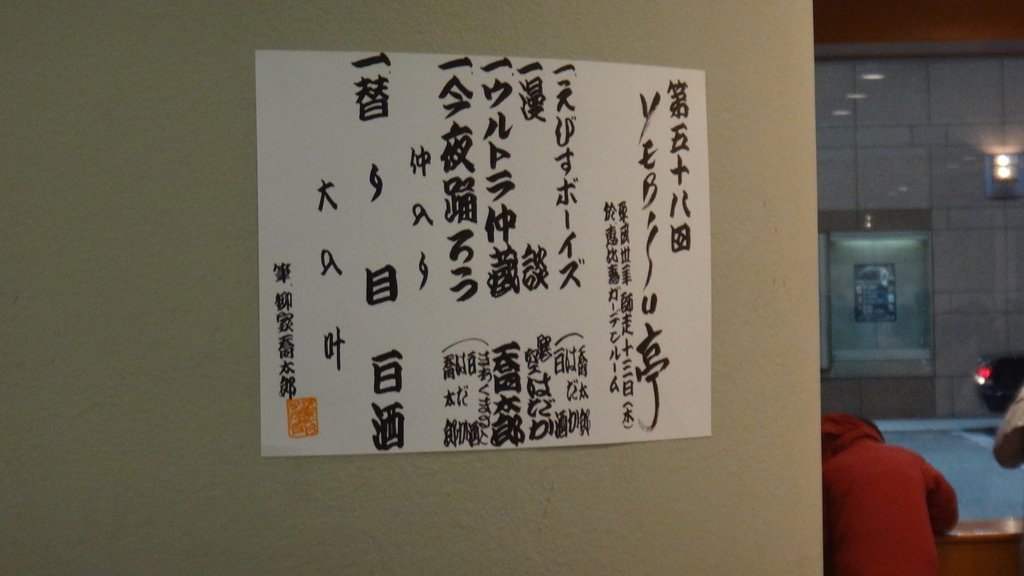 第五十八回
YEBISU亭
平成廿四年 師走十三日(木)
於 恵比寿ガーデンルーム
一 えびすボーイズ
(喬太郎
はだか
白酒
一 漫談
寒空はだか
一 ウルトラ仲蔵
喬太郎
一 今夜踊ろう
(白酒
はだか
喬太郎
仲入り
一 替り目 白酒
大入叶
筆 柳家喬太郎